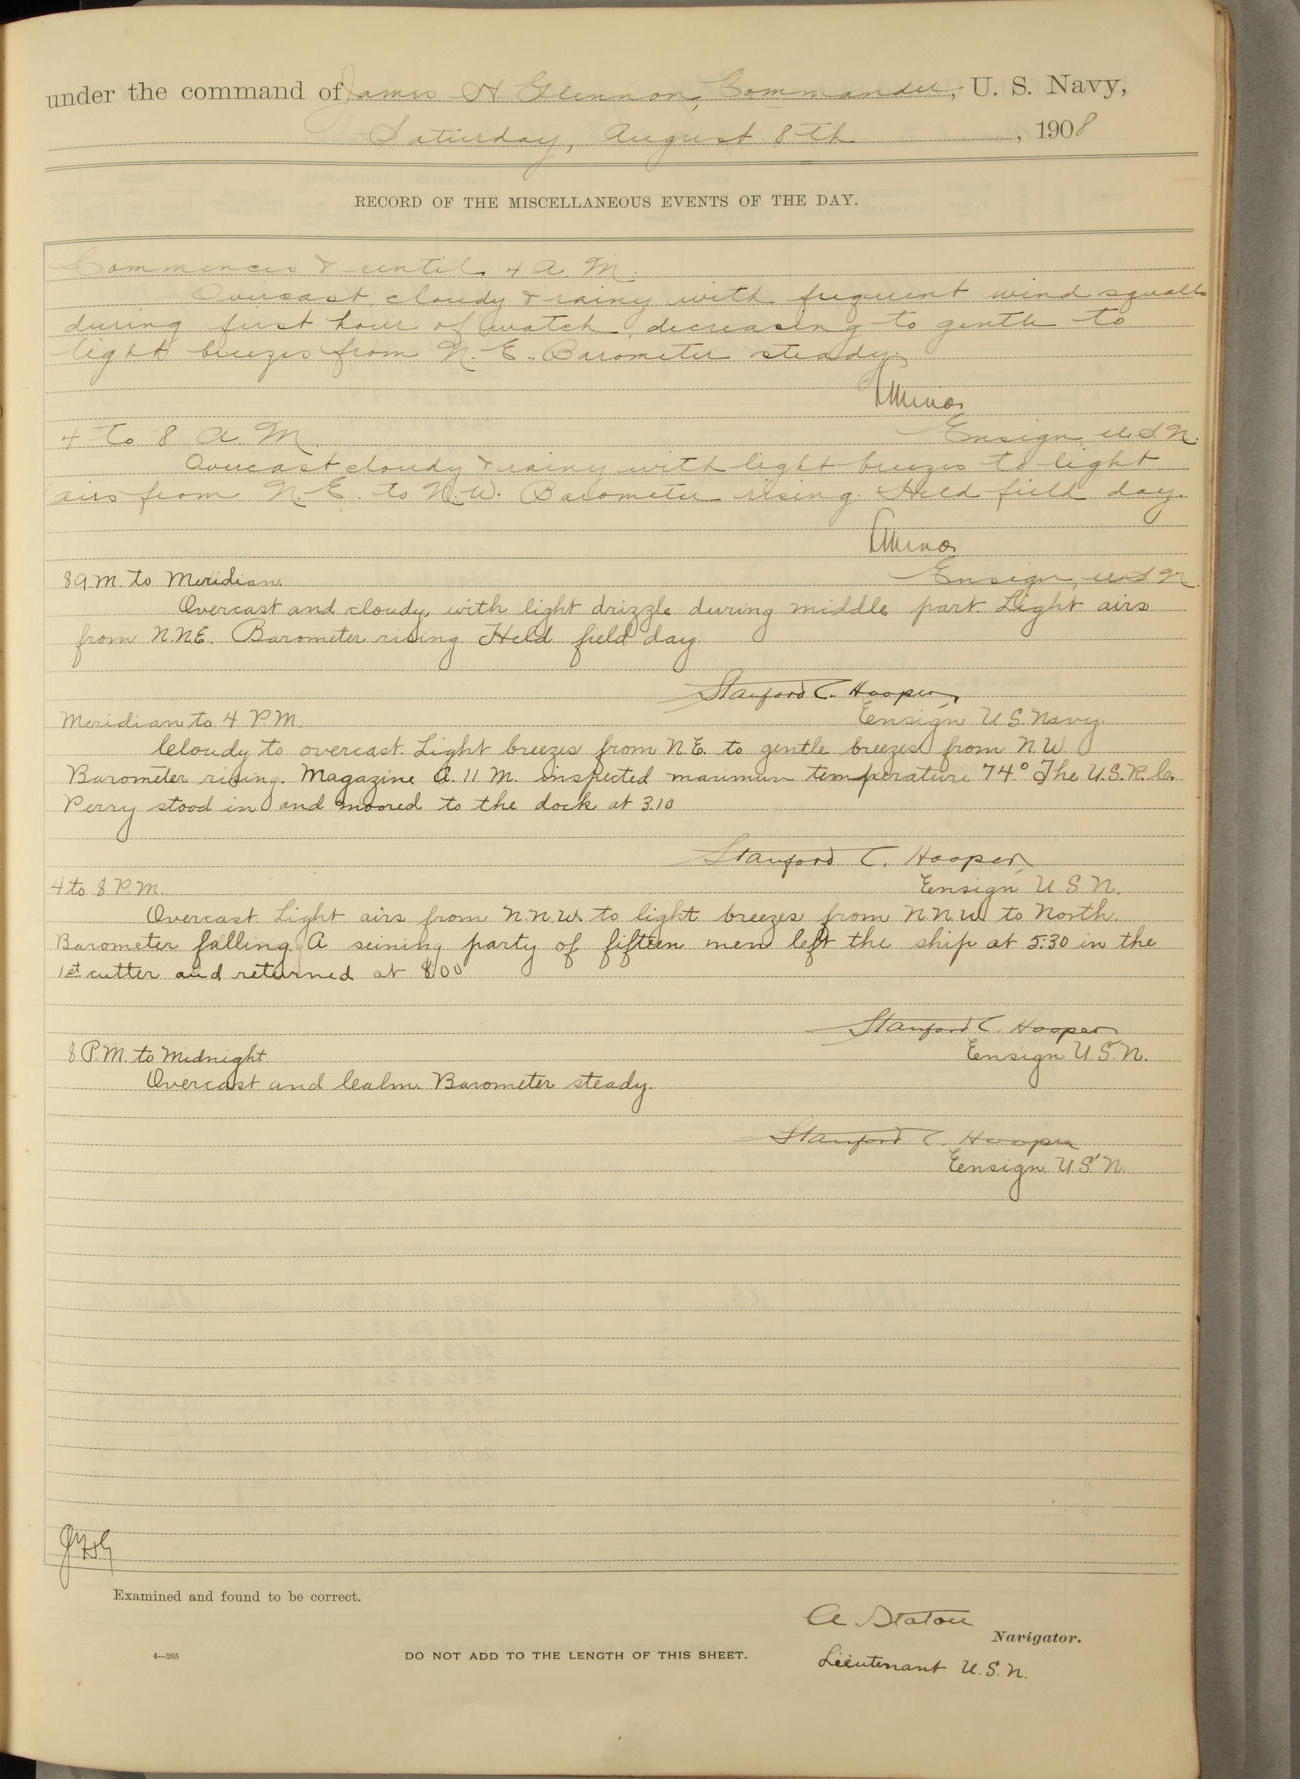 under the command of James H Glennon, Commander, U. S. Navy,
Saturday, August 8th, 1908
RECORD OF THE MISCELLANEOUS EVENTS OF THE DAY.
Commences & until 4 A. M.
Overcast cloudy & rainy with frequent wind squalls
during first hour of watch, decreasing to gentle to
light breezes from N. E. Barometer steady.
Ensign, U.S.N.
4 to 8 A. M.
Overcast cloudy & rainy with light breezes to light
airs from N.E. to N.W. Barometer rising. Held field day.
Ensign, U.S.N.
8 A M. to Meridian.
Overcast and cloudy, with light drizzle during middle part. Light airs
from N.N.E. Barometer rising. Held field day.
Stanford C. Hooper,
Ensign U.S. Navy.
Meridian to 4 P.M.
Cloudy to overcast. Light breezes from N.E. to gentle breezes from N.W.
Barometer rising. Magazine A. 11 M. inspected maximum temperature 74° The U.S.R.C.
Perry stood in and moored to the dock at 3.10
Stanford C. Hooper,
Ensign U.S.N.
4 to 8 P.M.
Overcast. Light airs from N.N.W. to light breezes from N.N.W. to North.
Barometer falling. A seining party of fifteen men left the ship at 5:30 in the
1st cutter and returned at 8.00
Stanford C. Hooper
Ensign U.S.N.
8 P.M. to Midnight.
Overcast and calm. Barometer steady.
Stanford C. Hooper
Ensign U.S.N.
JHG
Examined and found to be correct.
A. Staton
Navigator.
4—265
DO NOT ADD TO THE LENGTH OF THIS SHEET.
Lieutenant U.S.N.